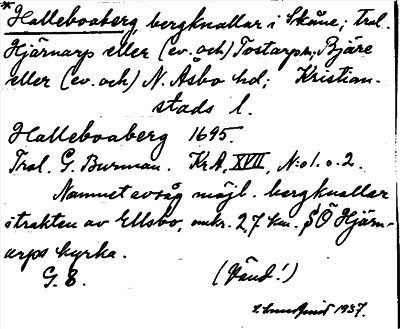 *Halleboaberg, bergknallar i Skåne; trol.
Hjärnarp eller (ev. och) Tostarp sn, Bjäre
eller (ev. och) N. Åsbo hd; Kristian-
stads l.
Halleboaberg 1695.
Trol. G. Burman. KrA, XVII, N:o 1. o. 2.
Namnet avsåg möjl. bergknallar
i trakten av Ellsbo, omkr. 2,7 km. SÖ Hjärn-
arps kyrka.
G. E. (Vänd!)
1937.